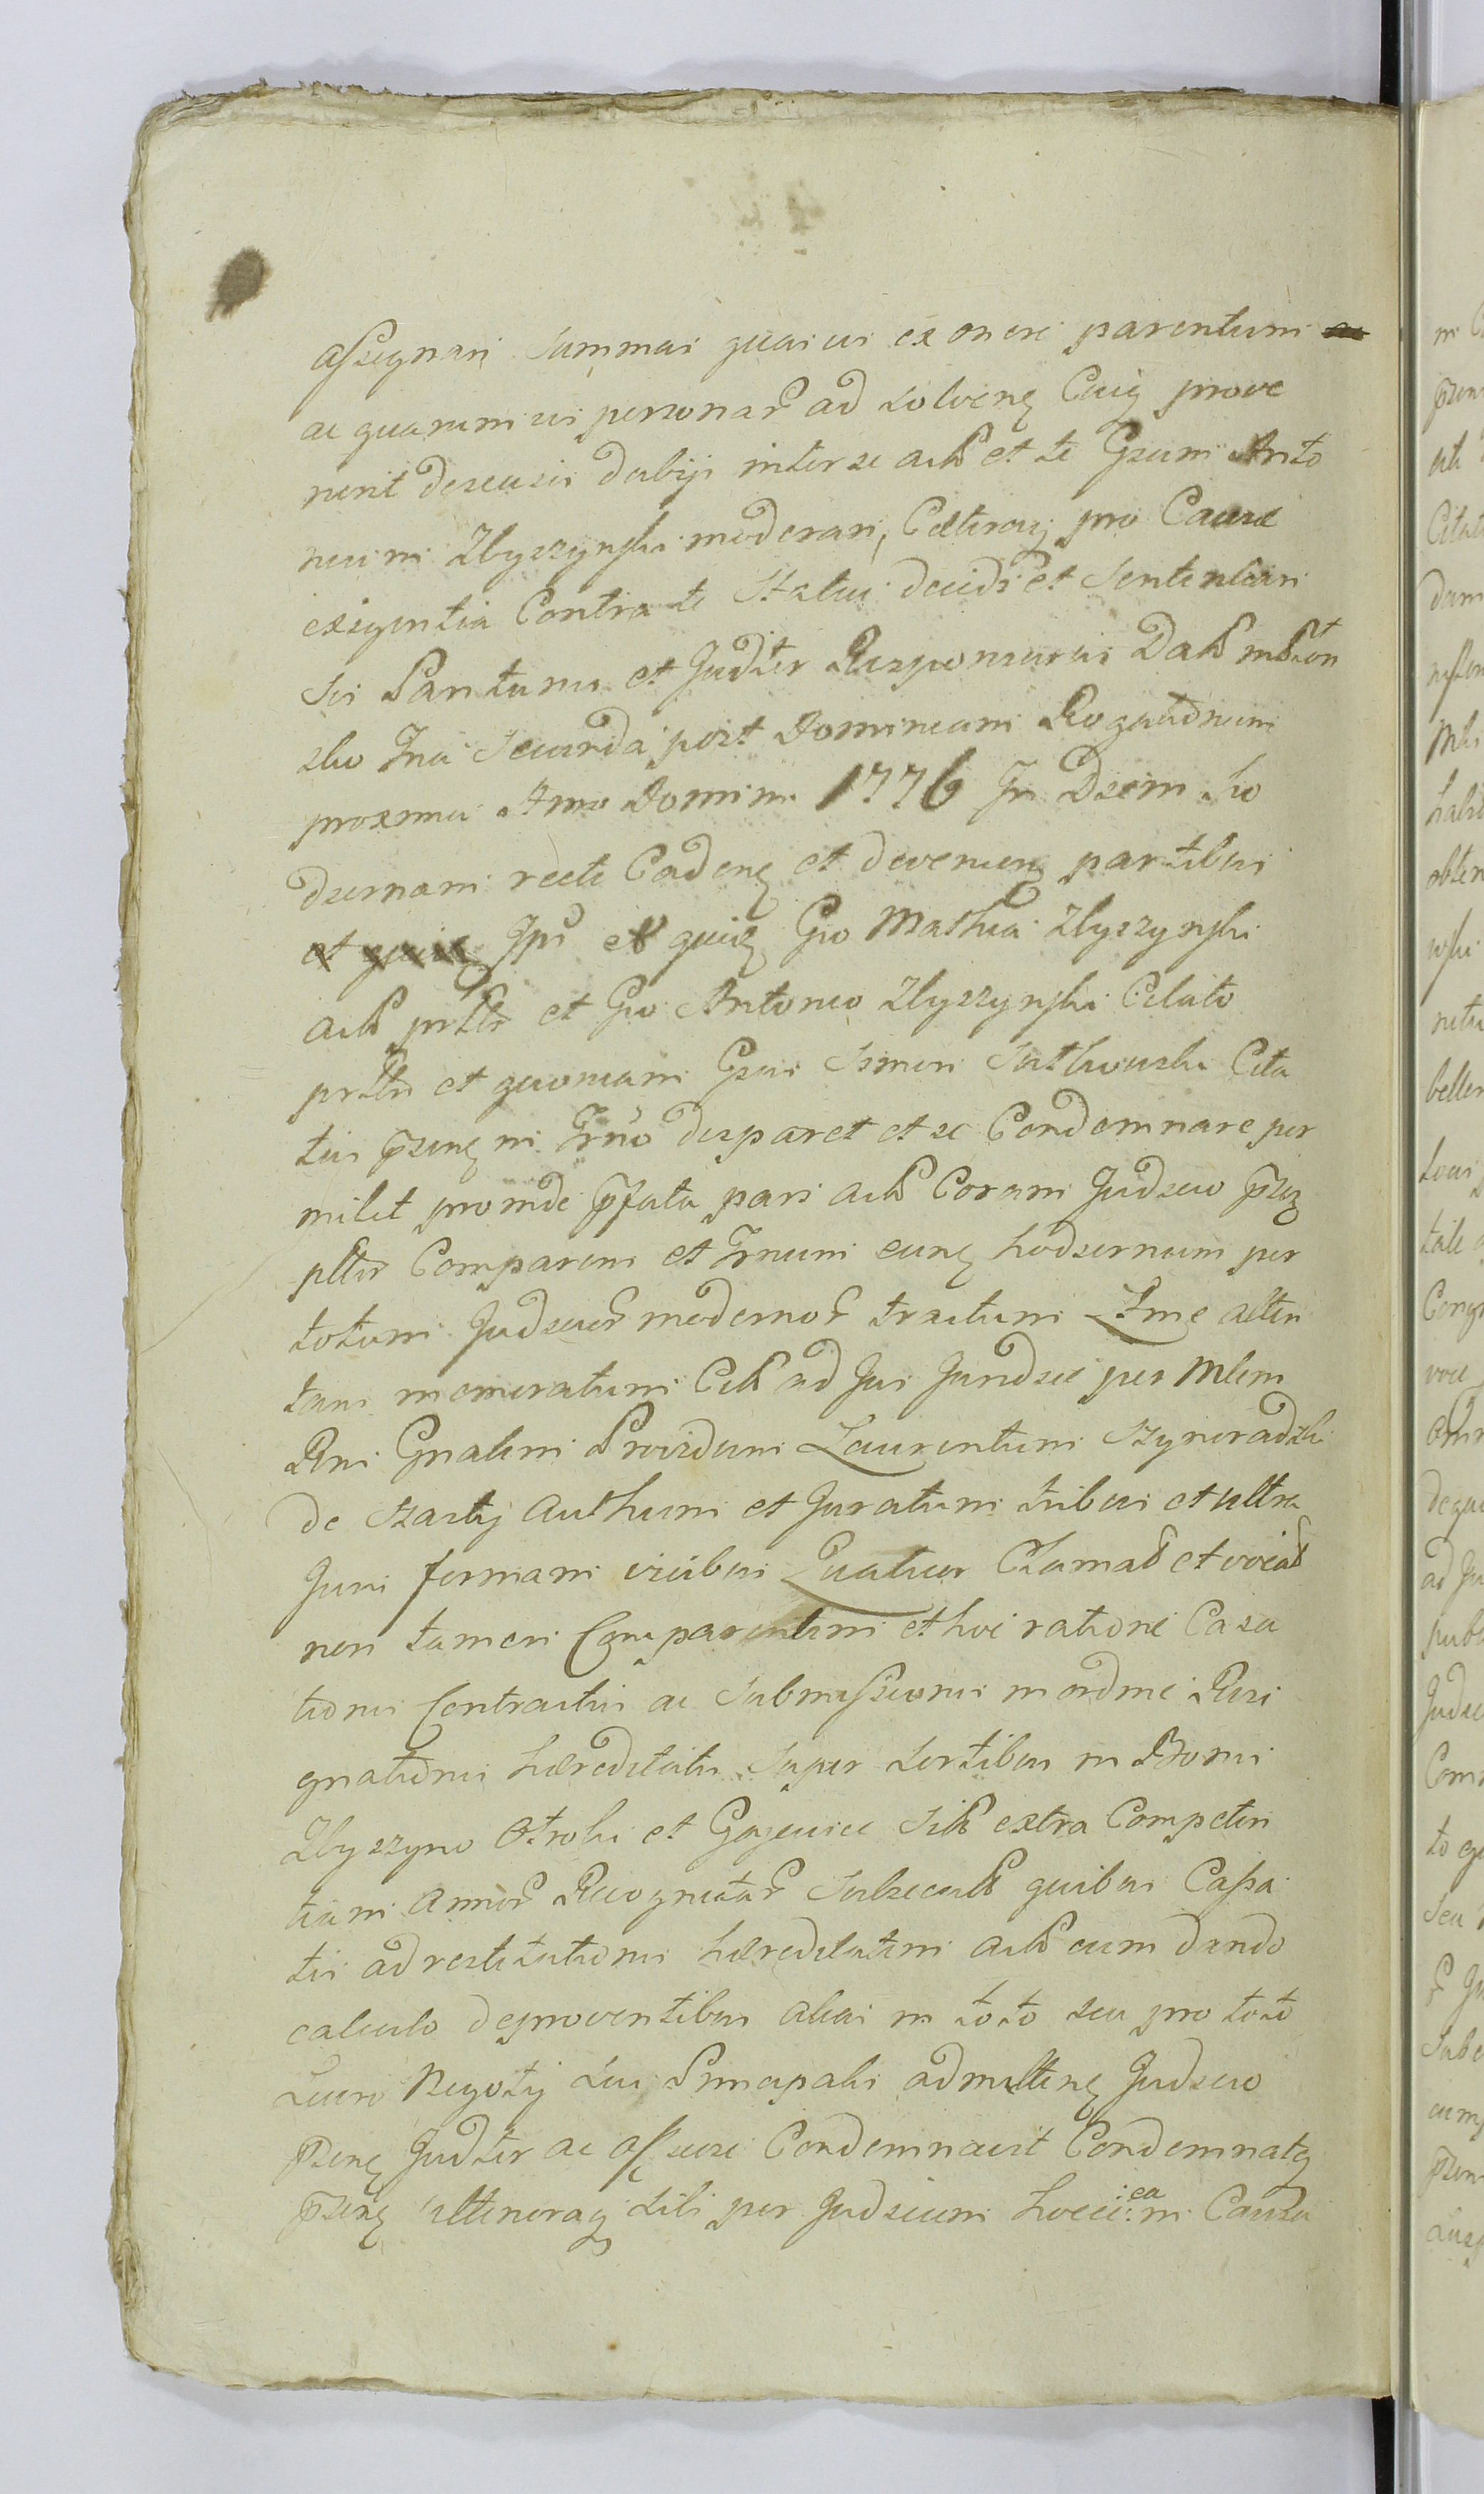 assignari Summas quasvis ex onere parentum
ac quarumvis personar ad solvenq Cuiq prove
nerit descusis dubijs inter se actt et te Gsum Anto
nium Zbyszynski moderari, Ceterorq pro Causæ
exigentia Contra te Statui decidi et Sententiari
Sis Pariturus et Judtter Responsurus Datt
Fria Secunda post Dominicam Rogaonum
proxima Anno Domini 1776 In Dsem ho
diernam recte Cadenq et devenienq partibus
et quidq Ipis et quidq Gso Mathia Zbyszynski
actt prttr et Gso Antonio Zbyszynski Citato
prttr et quoniam Gsus Simon Sutkowski Cita
tus psenq in Trno disparet et se Condemnare per
mitit proinde pfata pars actt Coram Judicio psq
pttr Comparens et Trnum eunq hodiernum per
totum Judicior modernor tractum Ltme atten
tans memoratum Citt ad Jus Jurdice per Mlem
Rni Gnalem Providum Laurentium Szyneradzki
de Szarty authum et Juratum tribus et ultra
Juris formam vicibus Quatuor Clamatt et vocatt
non tamen Comparentem et hoc ratione Casa
tionis Contractus ac Submissionis in ordine Resi
gnationis hæreditatis Super Sortibus in Bonis
Zbyszyno Otroki et Gajewice Sitt extra Competen
tiam annor Recognitar Subsecutt quibus Cassa
tis ad restitutionis hæreditatem actt cum dando
calculo de proventibus alias in toto seu pro toto
Lucro Negotij Sui Principalis admittenq Judicio
psenq Judtter ac Condemnavit Condemnatq
psenq ulteriorq Sibi per Judicium hocce :ea: in Causa